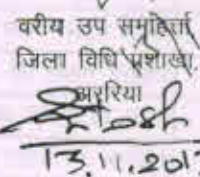 वरीय उप समाहर्त्ता
जिला विधि प्रशाखा,
अररिया
13.11.201